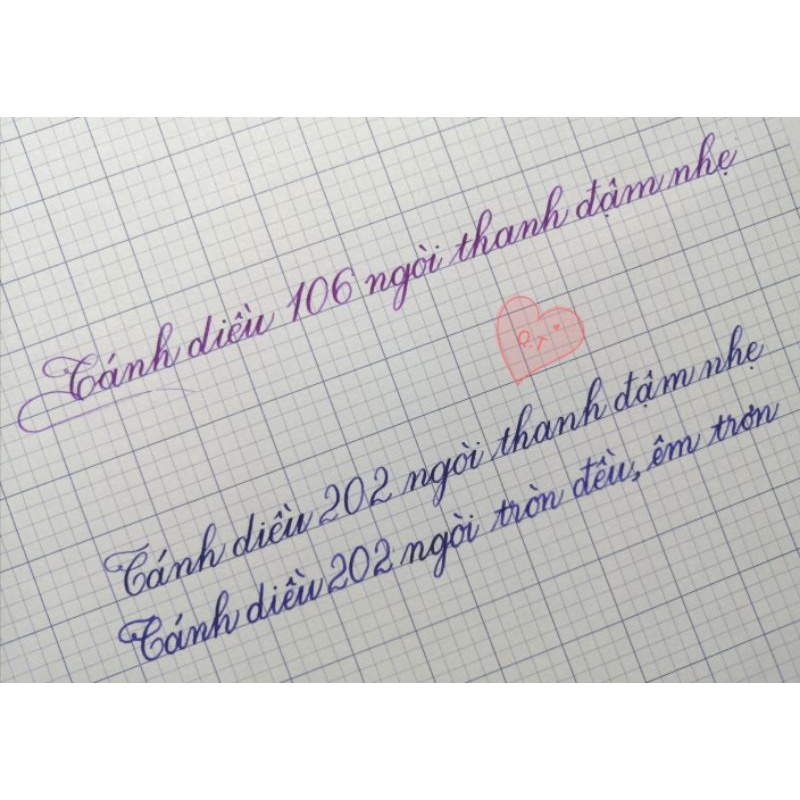 Cánh diều 106 ngòi thanh đậm nhẹ
Q.T
Cánh diều 202 ngòi thanh đậm nhẹ
Cánh diều 202 ngòi tròn đều, êm trơn